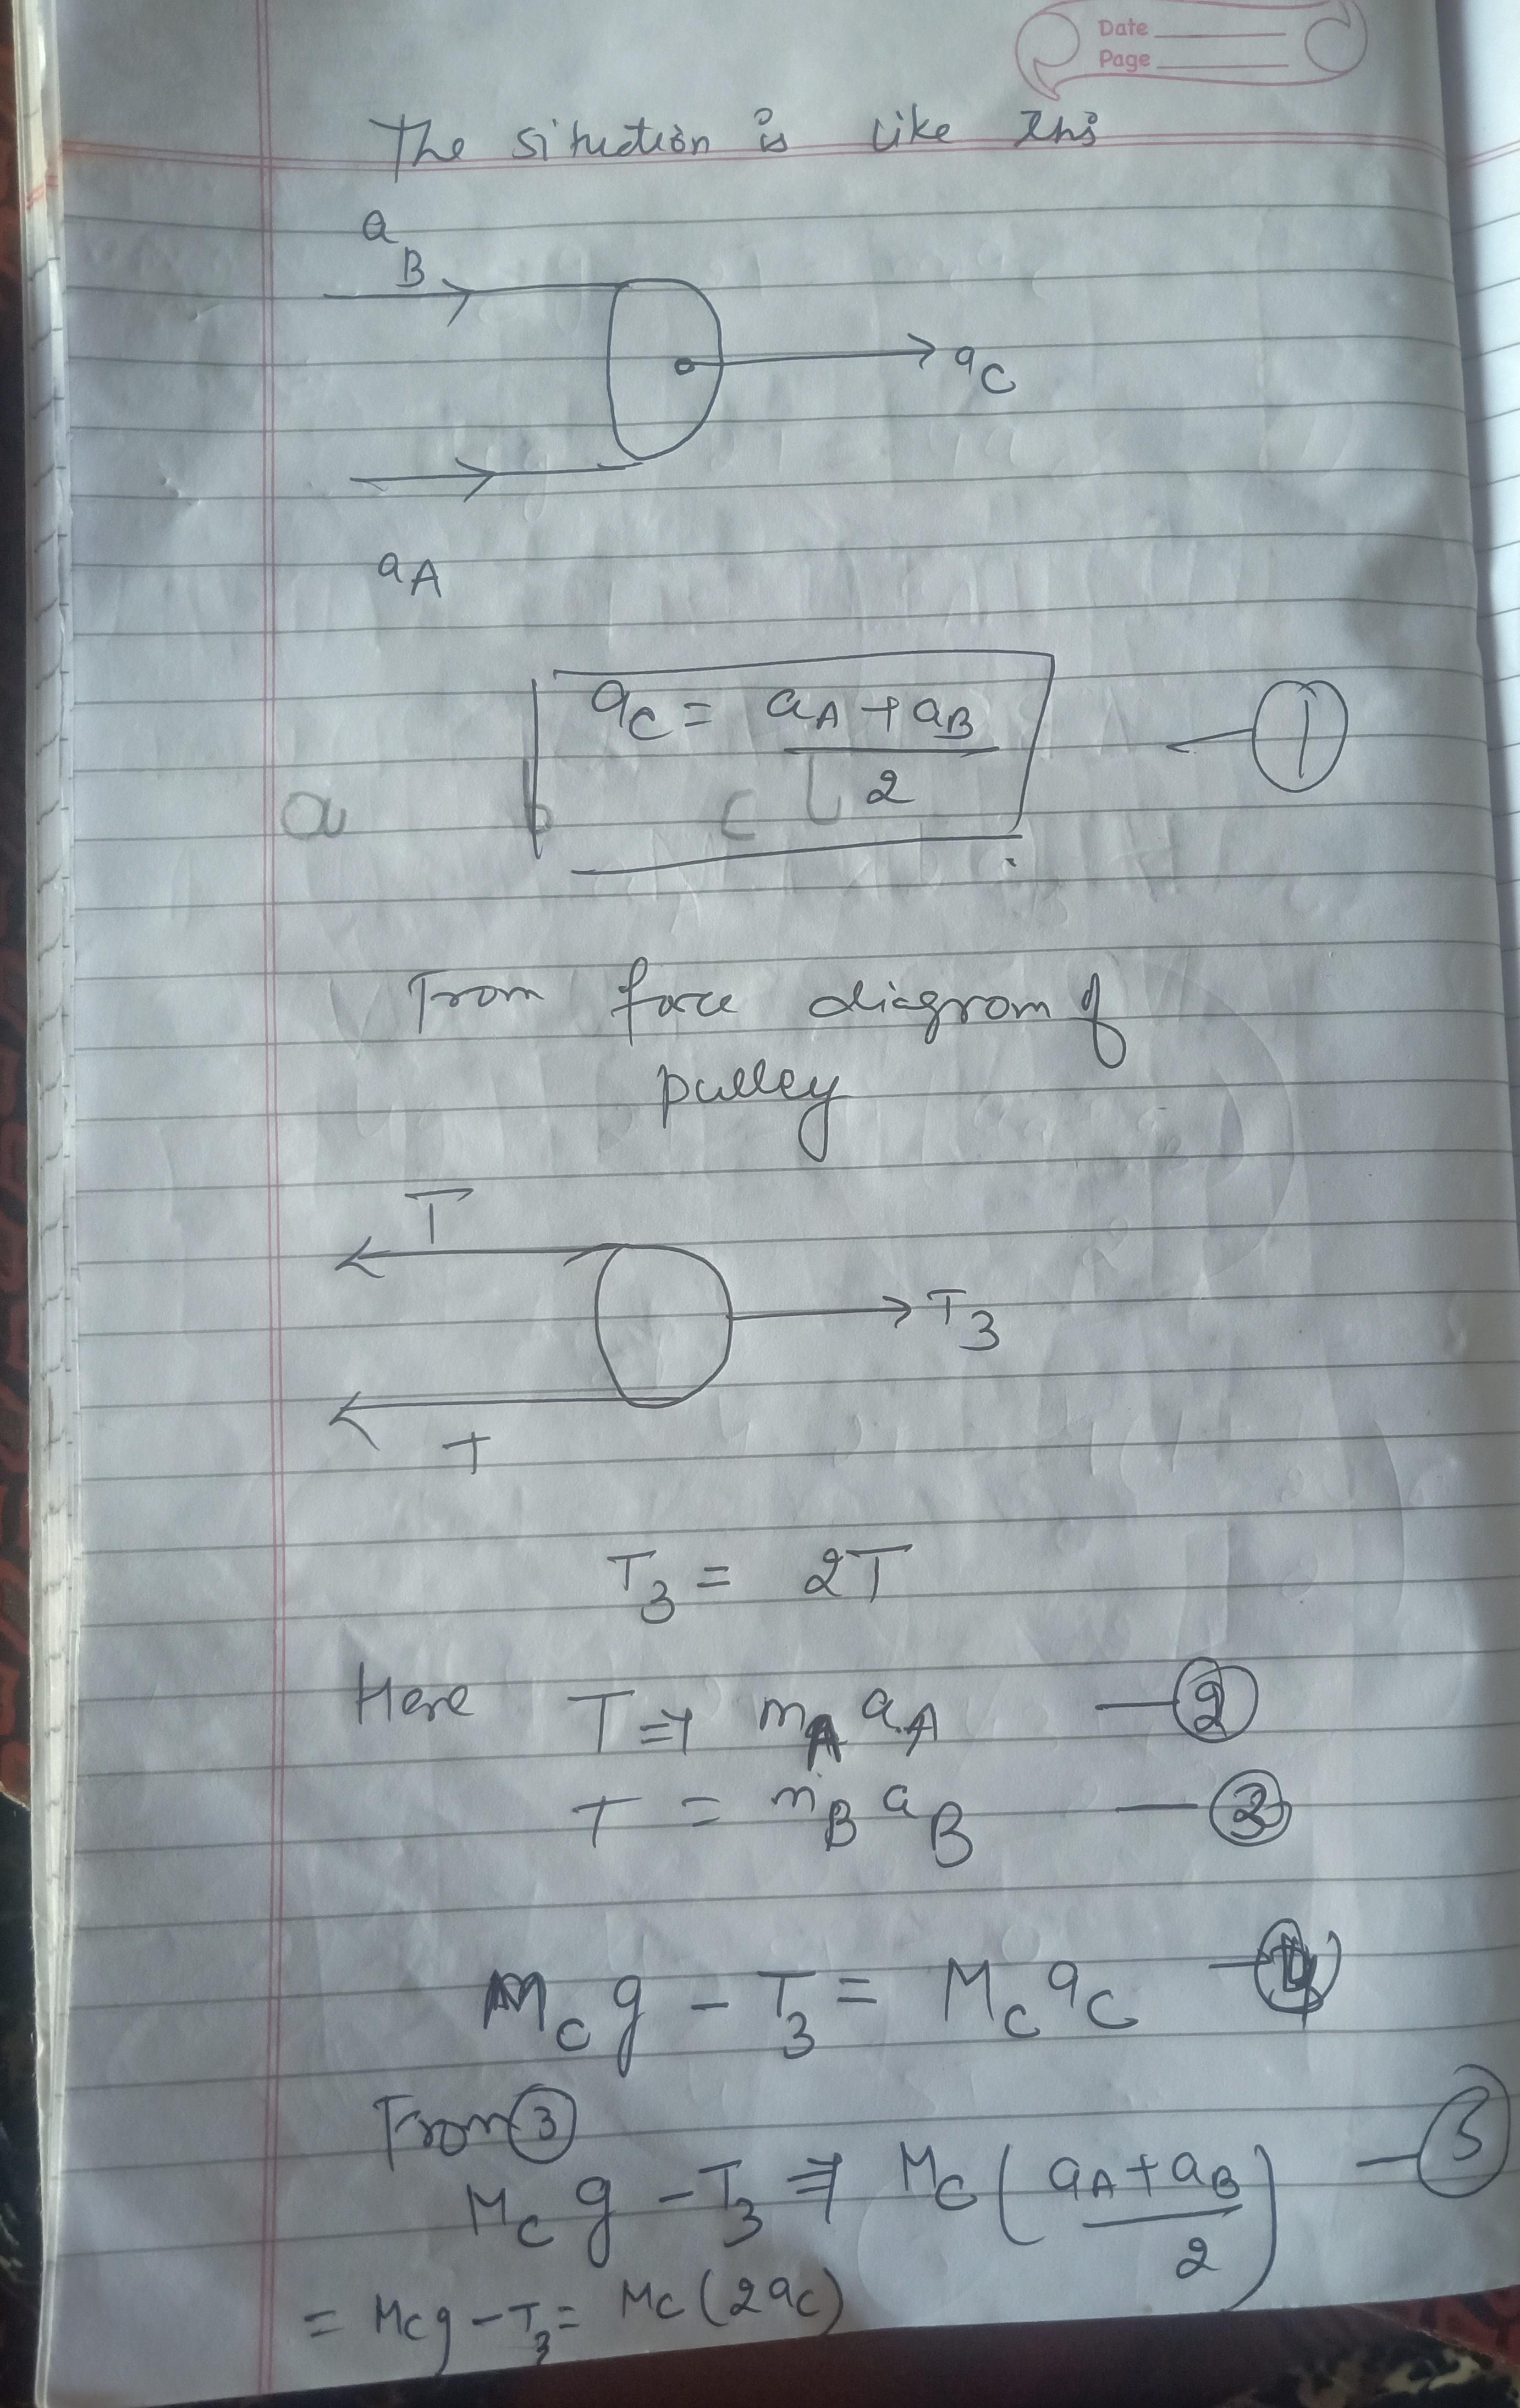 Date
Page
The situction is like this
a
B
aC
aA
aC = aA + aB
2
①
a b c
From force diagrom of
pulley
T
T3
T
T3 = 2T
Here T ⇒ mA aA — ②
T = mB aB — ③
Mc g - T3 = Mc ac — ④
From ③
Mc g - T3 ⇒ Mc ( aA + aB / 2 )
= Mcg - T3 = Mc (2ac)